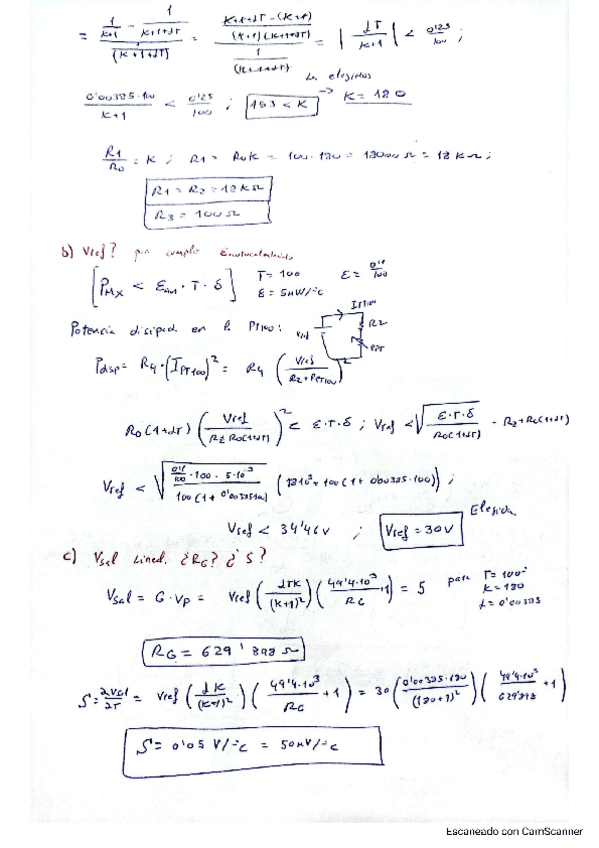 = \frac{\frac{1}{K+1} - \frac{1}{K+1+αT}}{\frac{1}{(K+1+αT)}} = \frac{\frac{K+1+αT-(K+1)}{(K+1)(K+1+αT)}}{\frac{1}{(K+1+αT)}} = | \frac{αT}{K+1} | < \frac{0'25}{100} ;
\frac{0'00385·100}{K+1} < \frac{0'25}{100} ; 153 < K → K = 180
\frac{R1}{R0} = K ; R1 = R0K = 100·180 = 18000 Ω = 18 KΩ ;
R1 = R2 = 18 KΩ
R3 = 100 Ω
b) Vref? por cumplir
[ P_{MX} < E_{} · T · δ ] T = 100 E = \frac{0'1}{100}
δ = 5mW/°C
Potencia disipad en la PT100: I_{PT100} Vref R2 RPT
Pdisp = R4 · (I_{PT100})^2 = R4 ( \frac{Vref}{R2 + R_{PT100}} )^2
R0(1+αT) ( \frac{Vref}{R2 R0(1+αT)} )^2 < E·T·δ ; Vref < \sqrt{\frac{E·T·δ}{R0(1+αT)}} · R2+R0(1+αT)
Vref < \sqrt{\frac{\frac{0'1}{100}·100·5·10^{-3}}{100(1+0'00385·100)}} (18·10^3+100(1+0'00385·100)) ;
Vref < 34'46V ; Vref = 30V Elegida
c) Vsal lineal. ¿RG? ¿S?
Vsal = G·Vp = Vref ( \frac{αTK}{(K+1)^2} ) ( \frac{49'4·10^3}{RG} +1 ) = 5 para T = 100° K = 180 α = 0'00385
RG = 629'898 Ω
S = \frac{∂Vsal}{∂T} = Vref ( \frac{αK}{(K+1)^2} ) ( \frac{49'4·10^3}{RG} + 1 ) = 30 ( \frac{0'00385·180}{(180+1)^2} ) ( \frac{49'4·10^3}{629'898} + 1 )
S = 0'05 V/°C = 50mV/°C
Escaneado con CamScanner